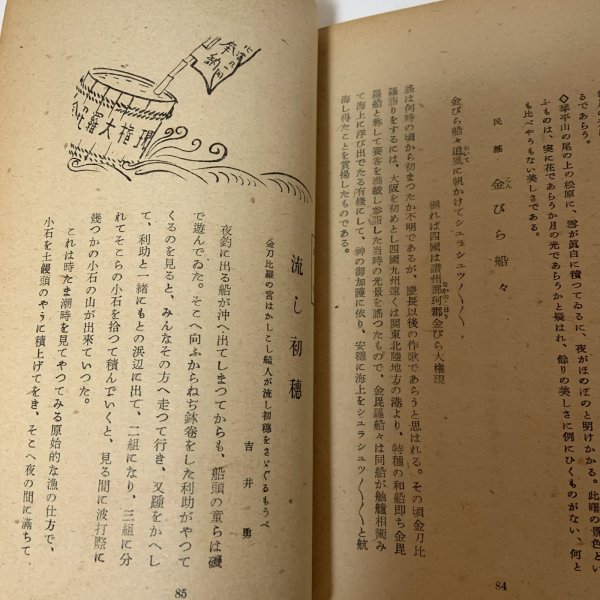 るであらう。
◇琴平山の尾の上の松原に、雪が眞白に積つてゐるに、夜がほのぼのと明けかかる。此曙の景色とい
ふものは、実に花であらうか月の光であらうかと疑はれ、餘りの美しさに例にひくものがない、何と
も比べやうもない美しさである。
民謠 金びら船々
こん
金びら船々追風に帆かけてシュラシュッ〱〱
おいて
廻れば四國は讃州那珂郡金びら大権現
なかのこほり
謠は何時の頃から初まつたか不明であるが、慶長以後の作歌であらうと思はれる。その頃金刀比
羅詣りをするには、大阪を初めとし四國九州遠くは関東北陸地方の港より、特種の和船即ち金毘
羅船と称して賽客を満載し参詣した当時の光景を謠つたもので、金毘羅船々は同船が舳艫相銜み
て海上に浮び出でたる有様にして、神の御加護に依り、安穏に海上をシュラシュッ〱〱と航
海し得たことを賞揚したものである。
84
奉納
金毘羅大権現
流し初穗
金刀比羅の宮はかしこし船人が流し初穗をさゝぐるもうべ
吉井 勇
夜釣に出る船が沖へ出てしまつてからも、船頭の童らは磯
で遊んでゐた。そこへ向ふからねぢ鉢巻をした利助がやつて
くるのを見ると、みんなその方へ走つて行き、又踵をかへし
て、利助と一緒にもとの浜辺に出て、二組になり、三組に分
れてそこらの小石を拾つて積んでいくと、見る間に波打際に
幾つかの小石の山が出來ていつた。
これは時たま潮時を見てやつてみる原始的な漁の仕方で、
小石を土饅頭のやうに積上げてをき、そこへ夜の間に満ちて
85